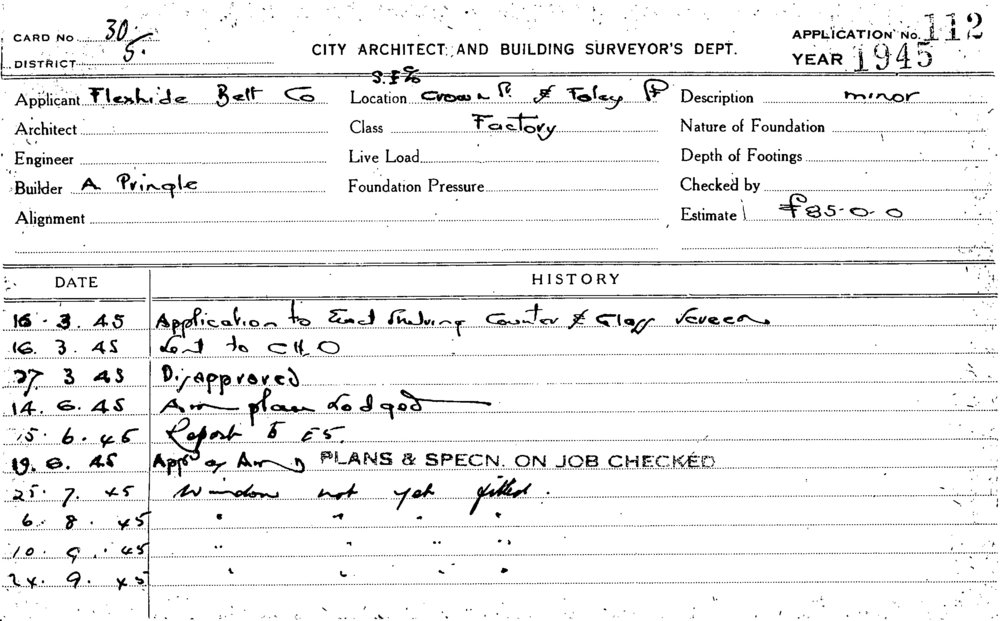 CARD No 30/5.
DISTRICT
CITY ARCHITECT AND BUILDING SURVEYOR'S DEPT.
APPLICATION No. 112
YEAR 1945
Applicant Flexhide Belt Co
Location S.E c/o Crown St & Foley St
Description minor
Architect
Class Factory
Nature of Foundation
Engineer
Live Load
Depth of Footings
Builder A Pringle
Foundation Pressure
Checked by
Alignment
Estimate £85-0-0
DATE HISTORY
16. 3. 45 Application to Erect Shelving Counter & Glass Screen
16. 3. 45 Sent to CHO
27 3 45 Disapproved
14. 6. 45 Am plan Lodged
15. 6. 45 Report to
19. 6. 45 PLANS & SPECN. ON JOB CHECKED
25. 7. 45 Window not yet fitted.
6. 8. 45 " " " "
10. 9. 45 " " " "
24. 9. 45 " " " "